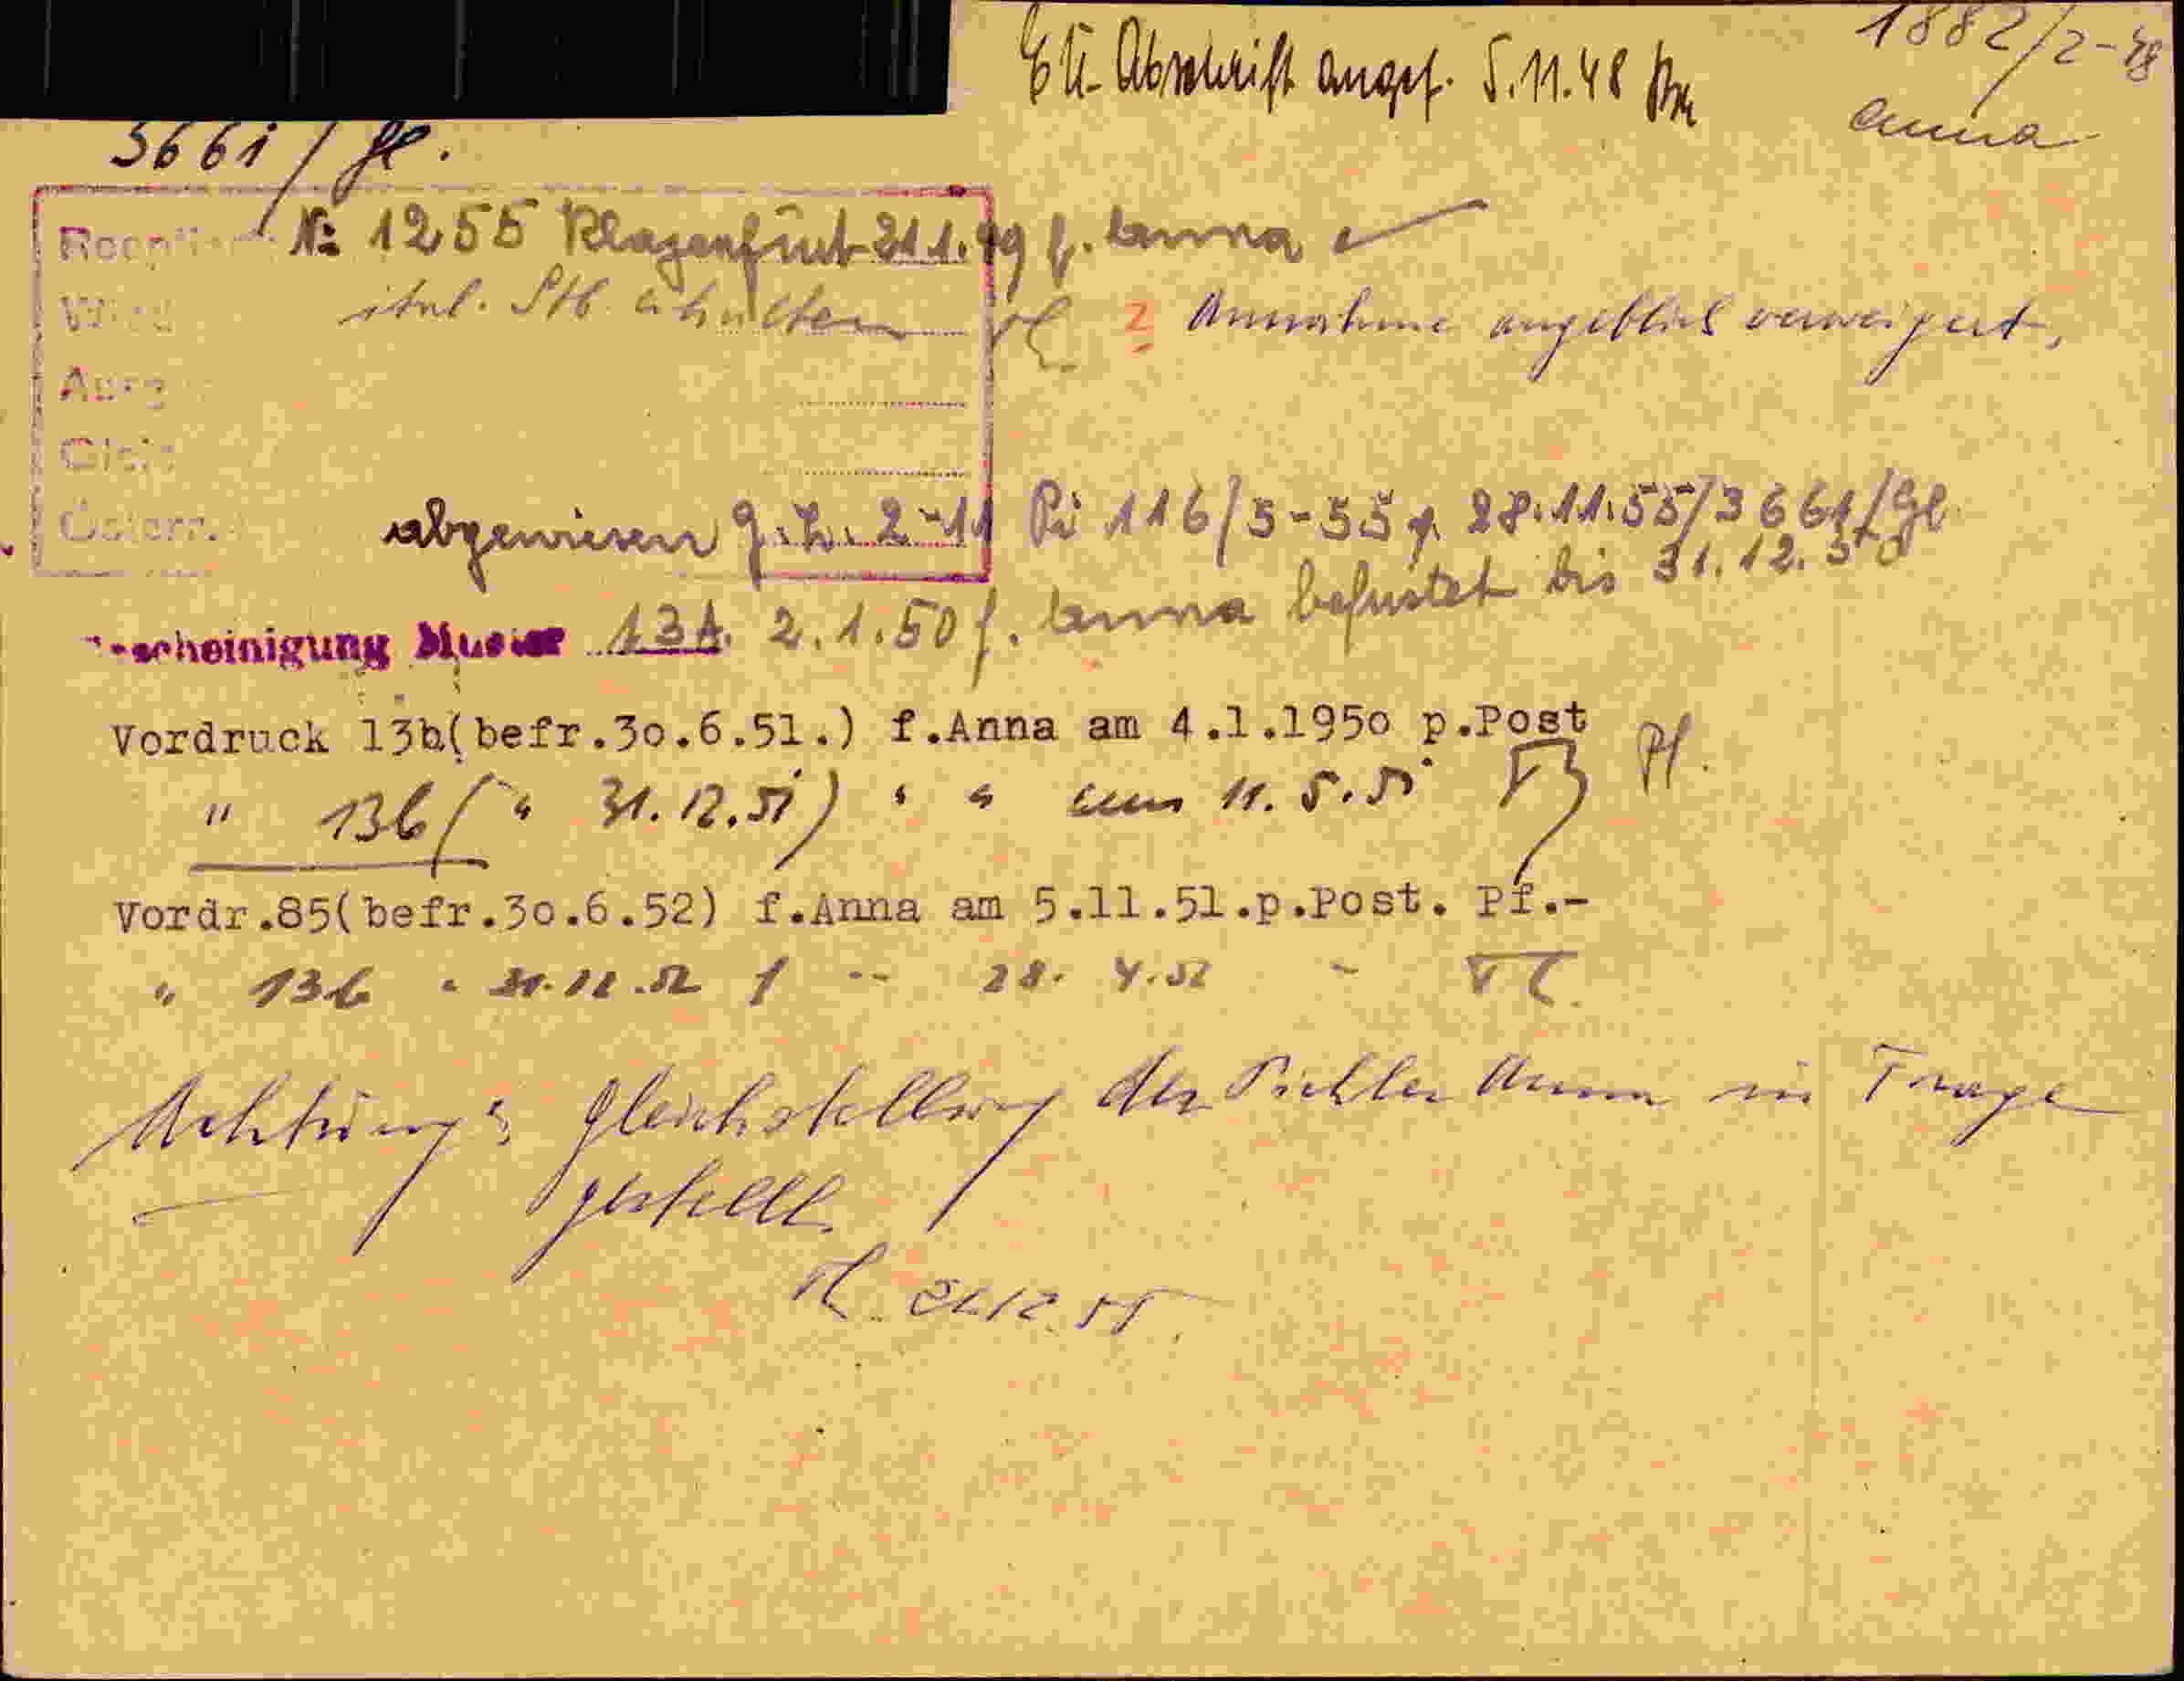 EU-Abschrift angef. 5.11.48
1882/2-48
Anna
3661/Gl.
No 1255 Klagenfurt 21.1.49 f. Anna
ital. Stb. erhalten
? Annahme angeblich verweigert,
Wied
Österr.
abgewiesen g. Z. 2-11 Pi 116/5-55 v. 28.11.55/3661/Gl
scheinigung Muster 13A. 2.1.50 f. Anna befristet bis 31.12.50
Vordruck 13b(befr.30.6.51.) f.Anna am 4.1.1950 p.Post Pf.
" 13b (" 31.12.51) " " am 11.5.51
Vordr.85(befr.30.6.52) f.Anna am 5.11.51.p.Post. Pf.-
" 13b " 31.12.52 f -- 28. 4.52 -
Achtung: Gleichstellung der Pichler Anna in Frage
gestellt